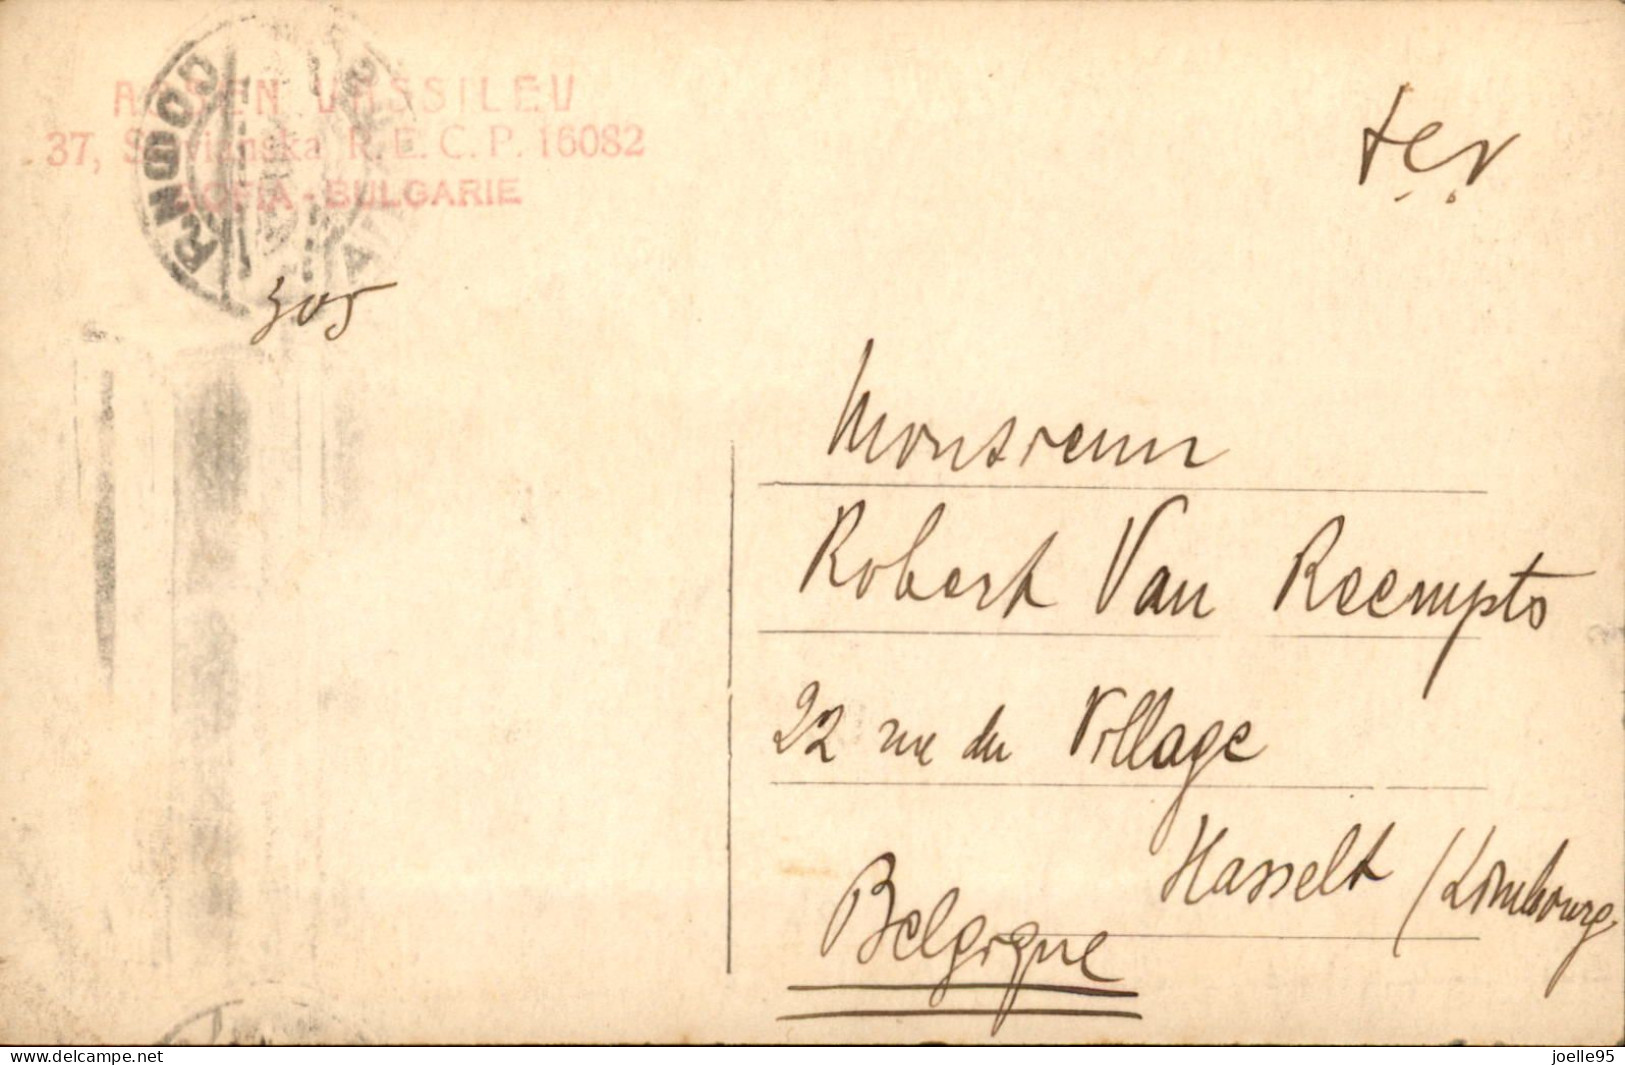 ASSEN VASSILEV
37, Slavianska R.E.C.P. 16082
SOFIA - BULGARIE
305
Monsieur
Robert Van Reempts
22 rue du Village
Hasselt / Limbourg
Belgique
delcampe.net
joelle95